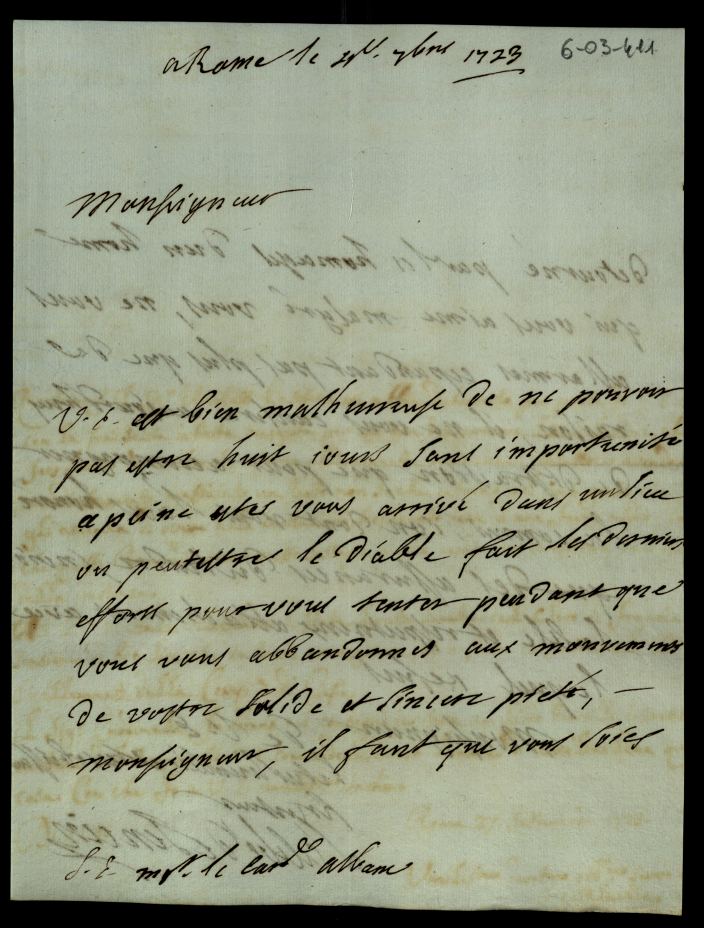 a Rome le 7bre 1723
6-03-411
Monseigneur
V. E. est bien malheureuse de ne pouvoir
pas estre huit iours sans importunité
a peine estes vous arrivé dans un lieu
ou peutestre le diable fait les derniers
efforts pour vous tenter pendant que
vous vous abbandonnes aux mouvemens
de vostre solide et sincere pieté, —
monseigneur, il faut que vous soies
S. E. mgr. le card. albane